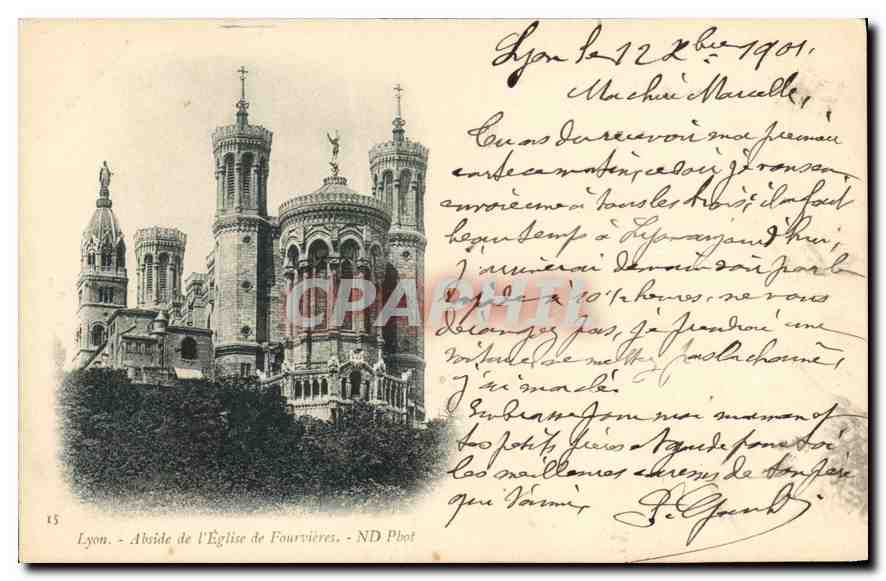 Lyon le 12 Xbre 1901.
Ma chère Marcelle,
Tu as du recevoir ma première
carte ce matin, ce soir je vous en
envoie une à tous les trois, il a fait
beau temps à Lyon aujourd'hui,
J'arriverai demain soir par le
rapide à 10 1/2 heures, ne vous
dérangez pas, je prendrai une
voiture, ne mettez pas la chaîne,
j'ai ma clé.
Embrasse pour moi maman et
tes petits frères et garde pour toi
les meilleures caresses de ton père
qui t'aime,
CPARHIL.com
15
Lyon. - Abside de l'Église de Fourvières. - ND Phot